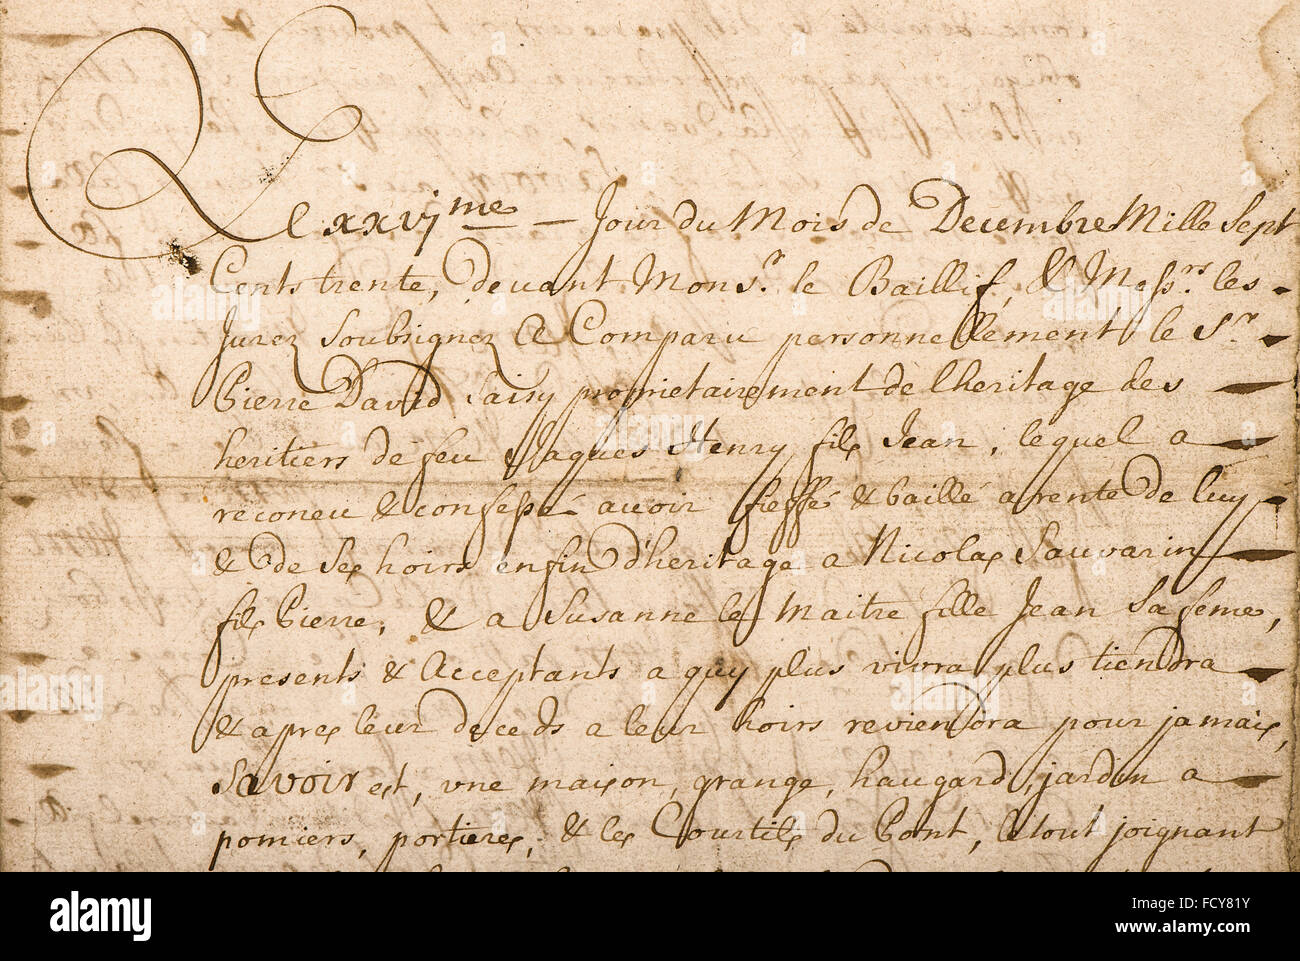 Le xxvj.me – Jour du Mois de Decembre Mille Sept
Cents trente, devant Mons.r le Baillif, & Mess.rs les
Jurez Soubsignez Est Comparu personnellement le S.r
Pierre David Saisy proprietairement de l'heritage des
heritiers de feu Jaques Henry fils Jean, lequel a
reconeu & confessé avoir fieffé & baillé a rente de luy
& de Ses hoirs enfin d'heritage a Nicolas Sauvarin
fils Pierre, & a Susanne le Maitre fille Jean Sa feme,
presents & Acceptants a quy plus vivra plus tiendra
& apres leur deceds a leur hoirs reviendra pour jamais,
Savoir est, vne maison, grange, haugard, jardin a
pomiers, portieres, & les Courtils du Pont, le tout joignant
alamy stock photo
a
alamy
Image ID: FCY81Y
www.alamy.com